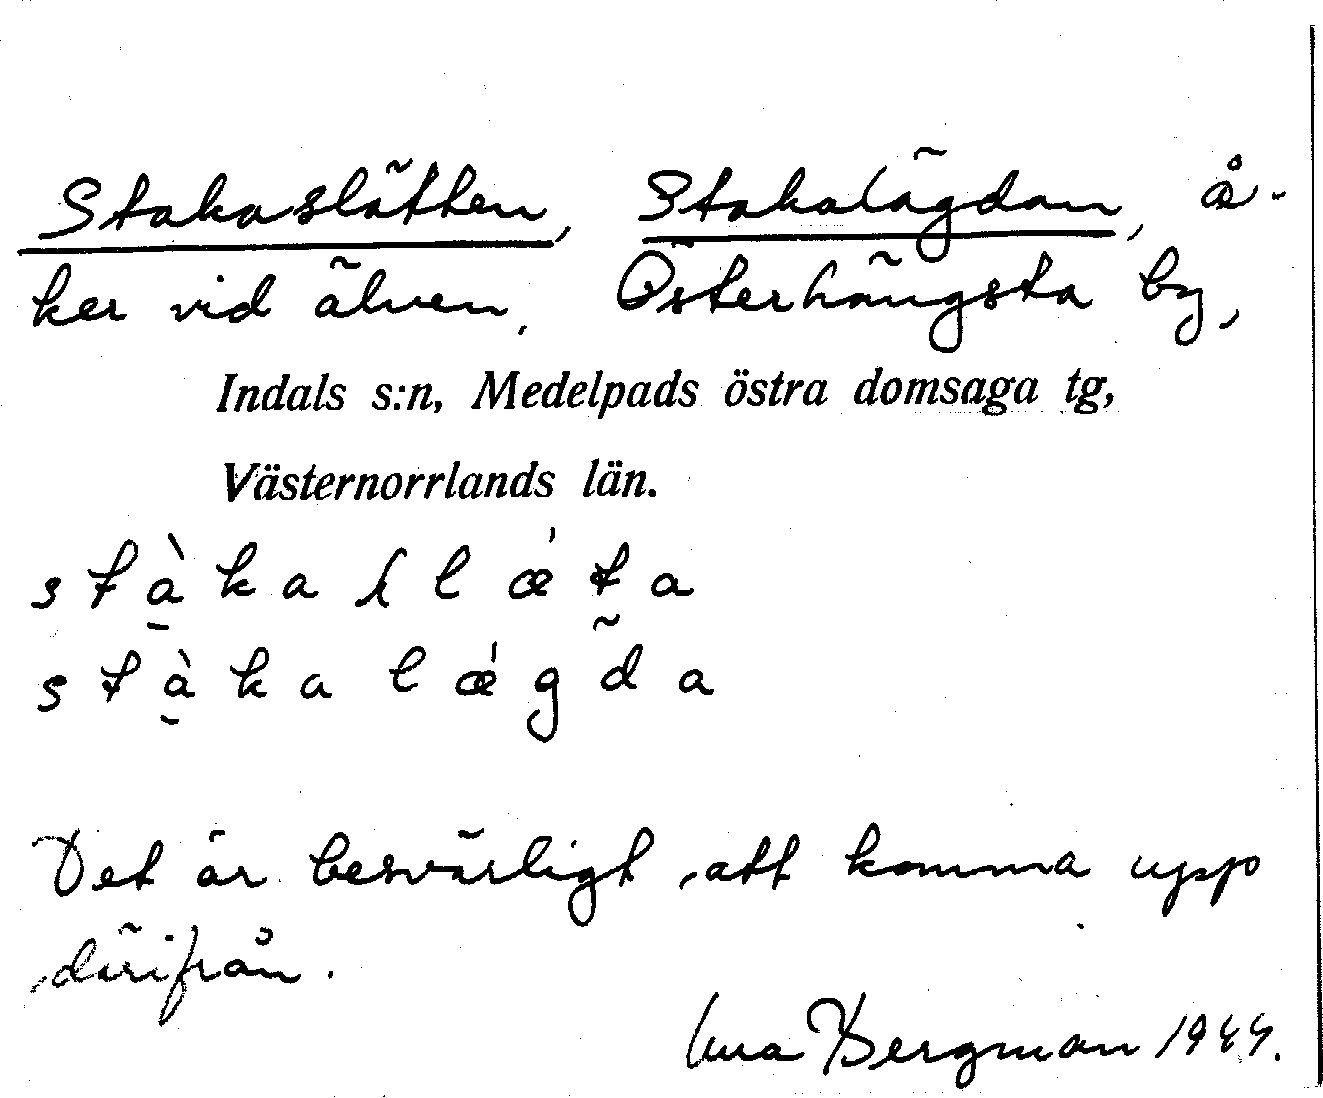 Stakaslätten, Stakalägdan, å-
ker vid älven, Österhängsta by,
Indals s:n, Medelpads östra domsaga tg,
Västernorrlands län.
stàkaslǽta
stàkalǽgda
Det är besvärligt att komma upp
därifrån.
Bergman 1944.